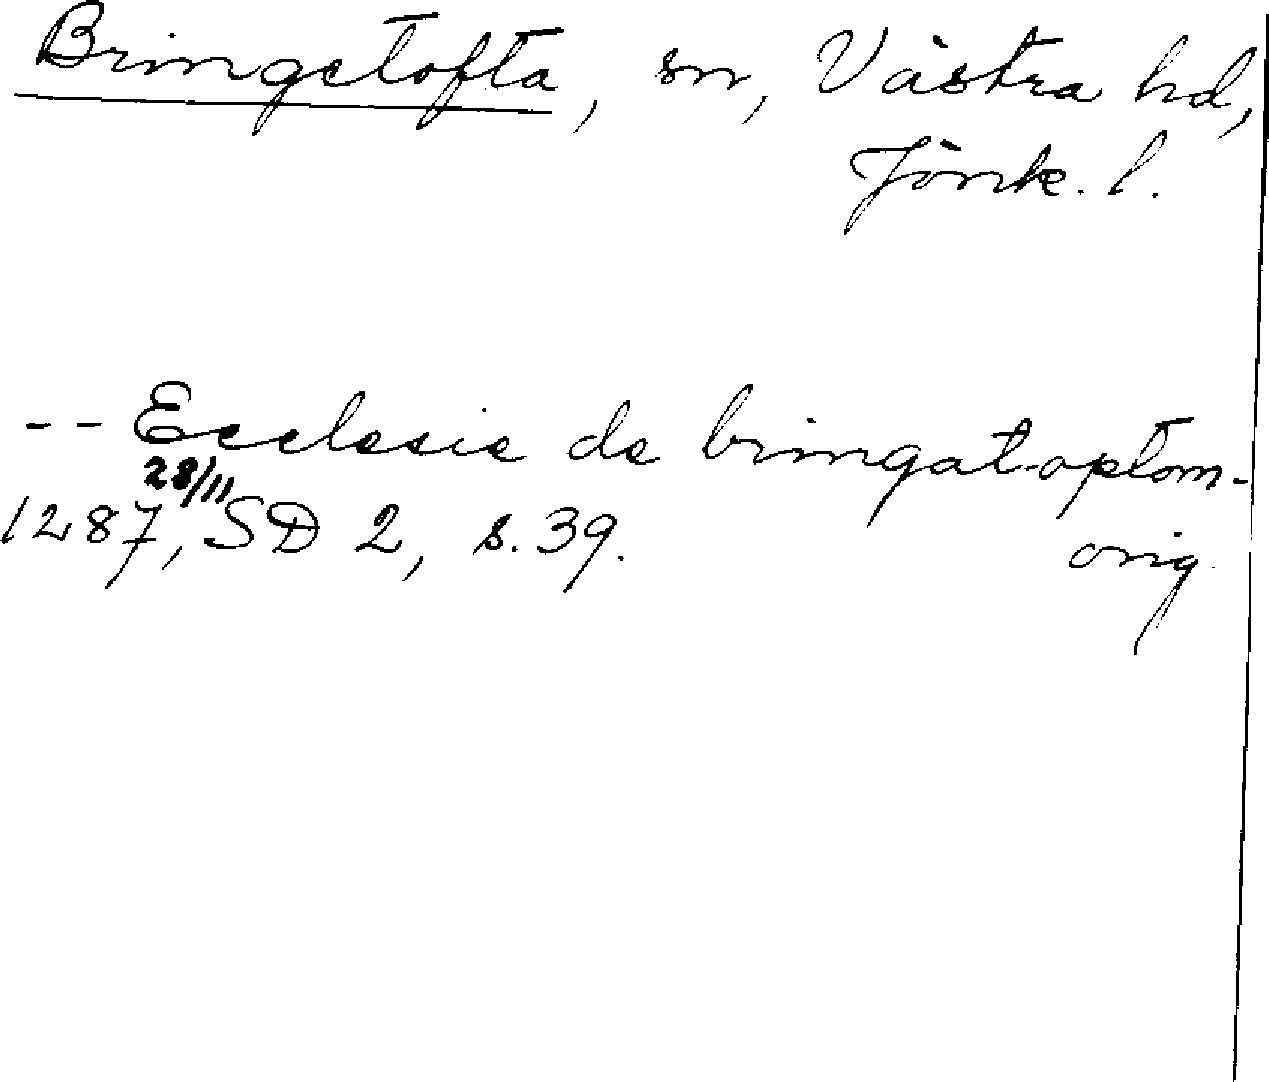 Bringetofta, sn, Västra hd,
Jönk. l.
-- Ecclesie de bringatoptom-
28/11
1287, SD 2, s. 39.
orig.